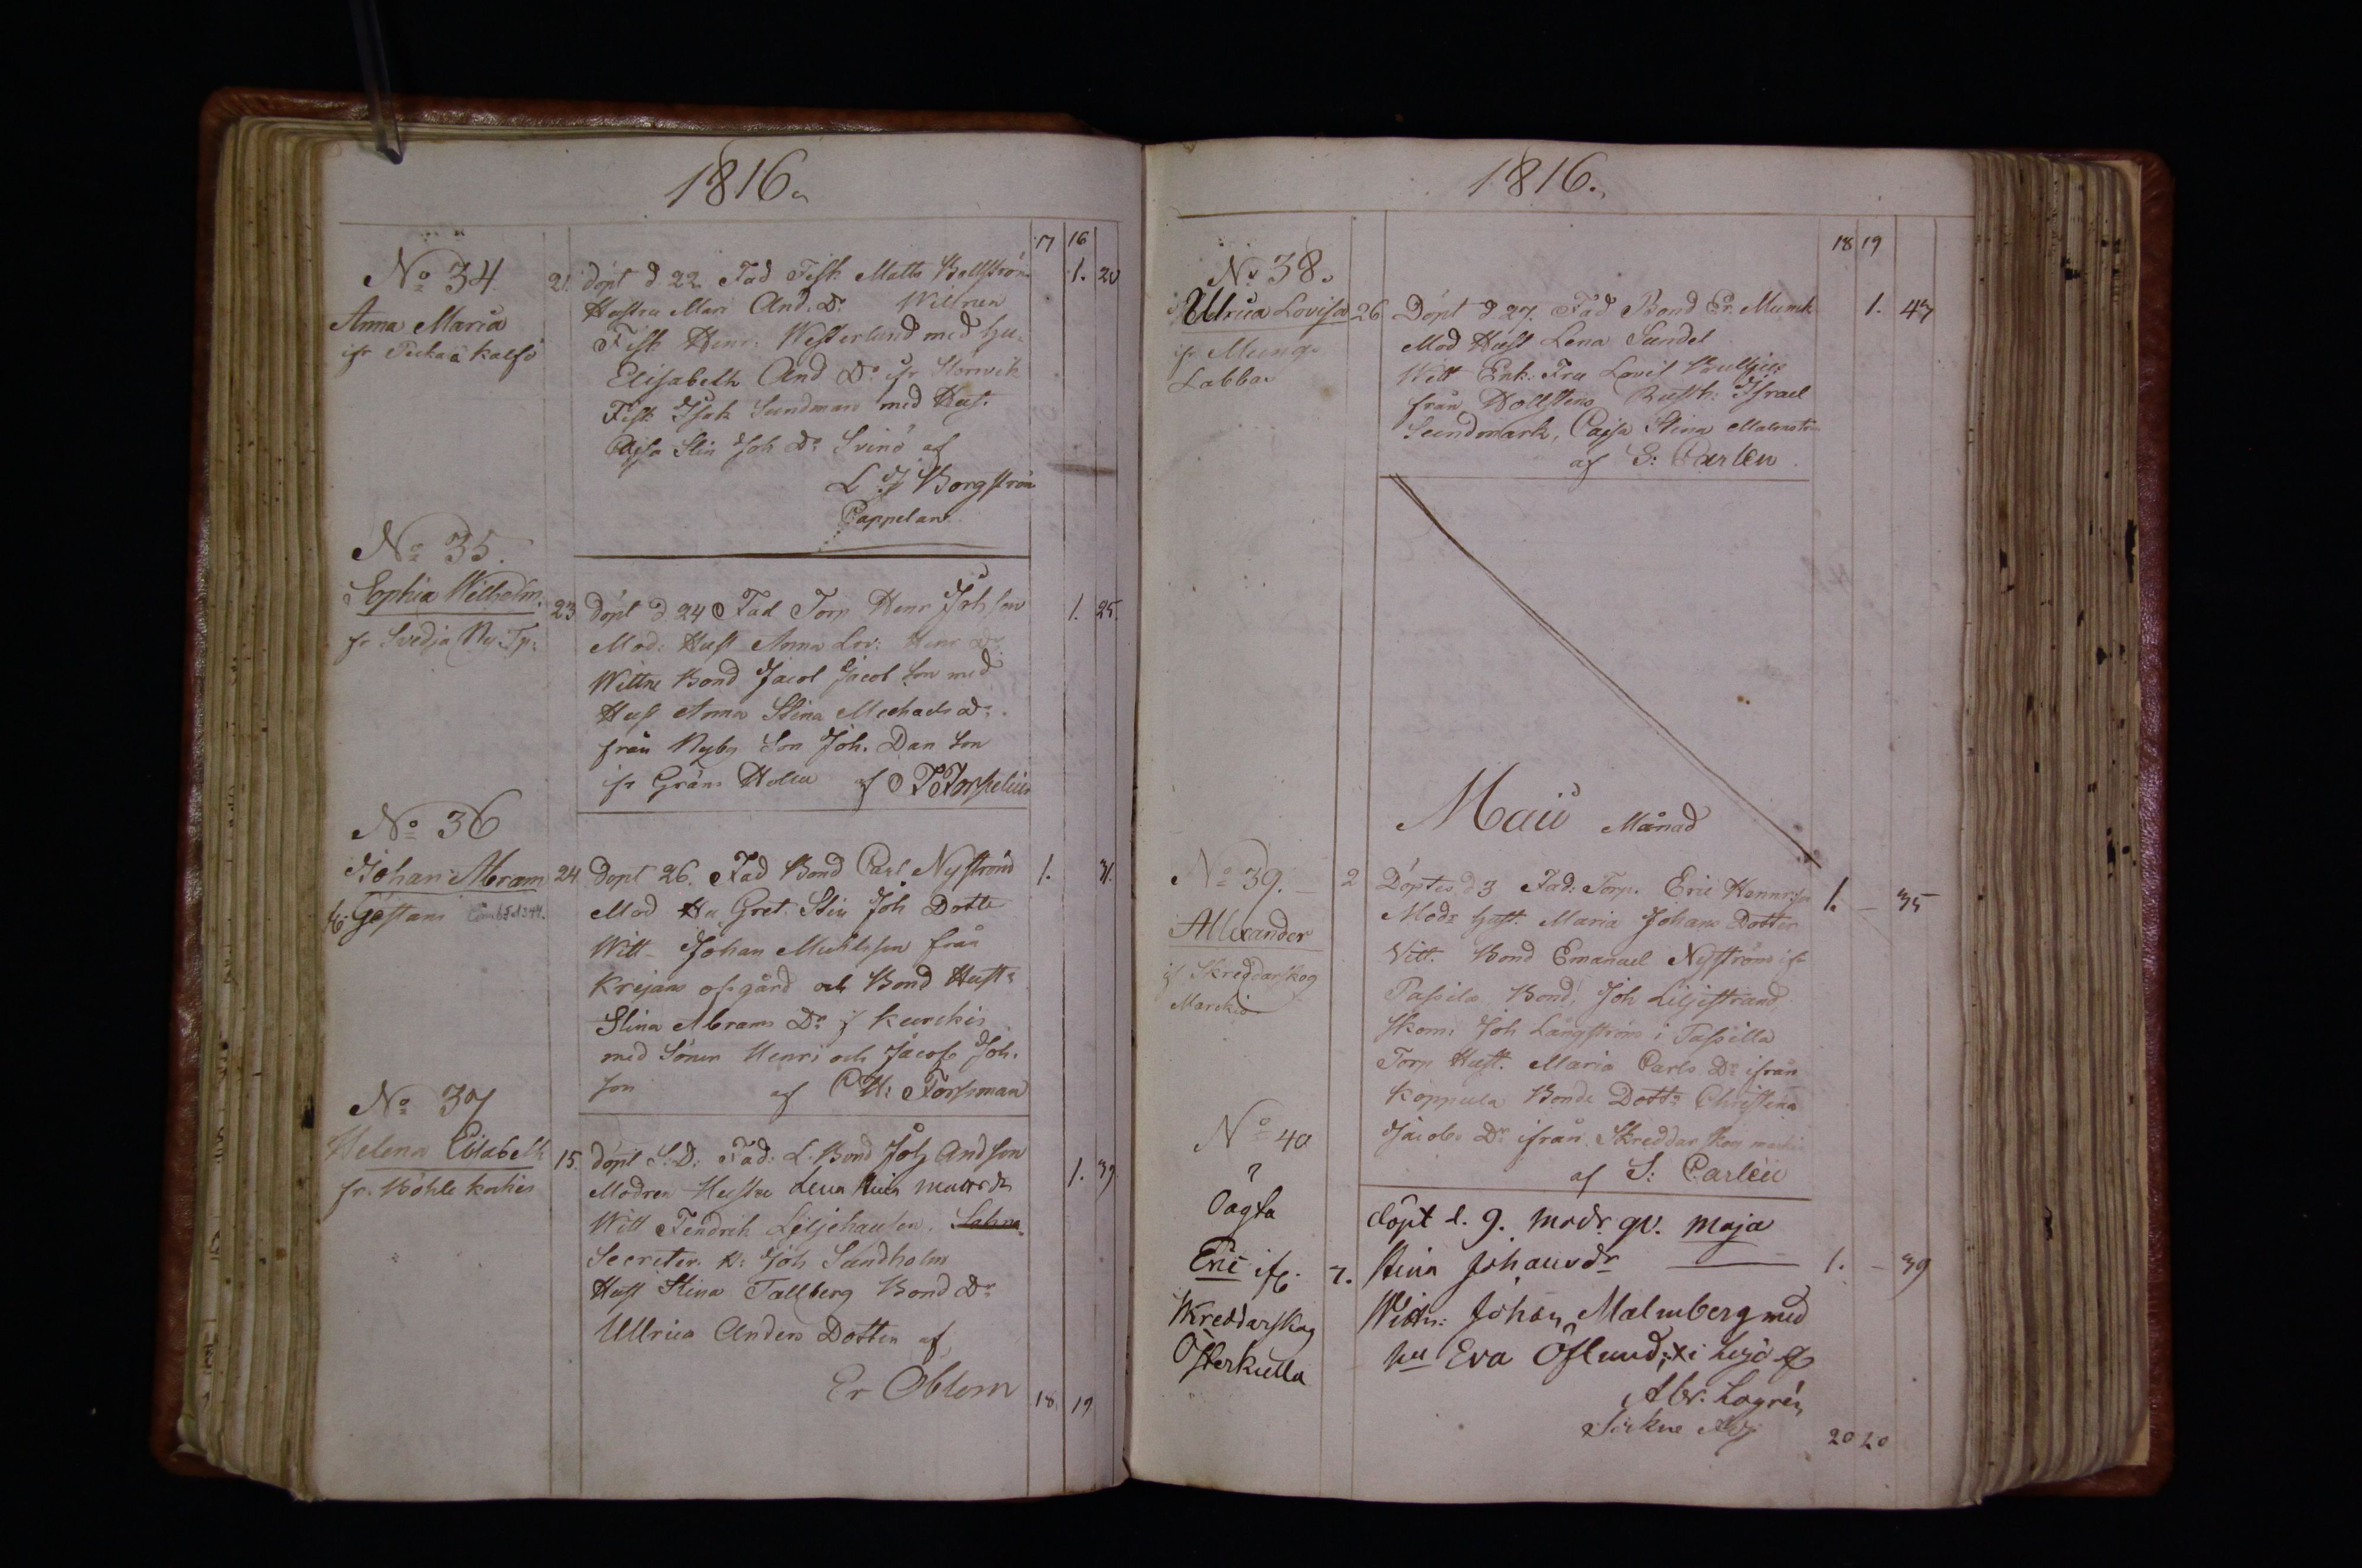 1816.
17 16
No 34.
Anna Maria
ifr Pickaå Kalfö
21. döpt d 22. Fad Fisk. Matts Bollström 1. 20
Hustru Mari And. Dr. Wittnen
Fisk Henr: Westerlund med hu.
Elisabeth And Dr: ifr Storwik
Fisk Isak Sundman med Hus.
Cajsa Stin Joh Dr. Svinö af
L J Borgström
Cappelan.
No 35.
Sophia Wilhelm.
fr Svedja Ny Tp:
23 döpt d. 24 Fad Torp Henr Joh son 1. 25.
Mod: Hust Anna Lov: Henr Dr.
Wittne Bond Jacob Jacob son med
Hust Anna Stina Michaels dr.
från Nyby Son Joh. Dan son
ifr Gräns Holm af
No 36
Johan Abram
fr. Gästans
24. Döpt 26. Fad Bond Carl Nyström 1. 31.
Mod Hu Gret. Stin Joh Dotte
Witt Johan Michlsson från
Krejans ofgård och Bond Hust:
Stina Abrams Dr. if Kurckis
med Söner Henri och Jacob Joh.
son af C H: Forssman
No 37
Helena Elisabeth
fr. Böhle kockis
15. döpt S. D. Fad: L. Bond Joh And son 1. 39.
Modren Hustru Lena Stina
Witt Fendrik Liljehausen.
Secreter. H: Joh Sundholm
Hust Stina Tallberg Bond Dr
Ullrica Anders Dotter af
Er Öblom
18. 19
1816.
18 19
No 38.
Ullrica Lovisa
ifr Mungs
Labba
26 Döpt d. 27. Fad Bond Er. Munck 1. 47
Mod Hust Lena Sundel
Witt Enk. Fru Lovis
från Hollstens Rusth: Israel
Sundmark, Cajsa Stina Malmström
af S: Carlen
Maii Månad
No 39.
Allexander
if Skreddarskog
Marckis
2 Döptes d 3 Fad: Torp. Eric Henricson 1. — 35
Mod: Hust. Maria Johans Dotter
Vitt. Bond Emanuel Nyström ifr
Passila Bond, Joh Liljestrand
skom: Joh Långström i Passilla
Torp Hust. Maria Carls Dr ifrån
Koppela Bonde Dott: Christina
Jacobs Dr ifrån Skreddarskog
af S: Carlen
No 40
?
Oägta
Eric ifr.
Skreddarskog
Österkulla
7. döpt d. 9. Modr qv. Maja
Stina Johansdr — 1. — 39
Wittn: Johan Malmberg med
hu Eva Öslund; i Lojo af
Abr. Logrén
Sockne Adj
20 20